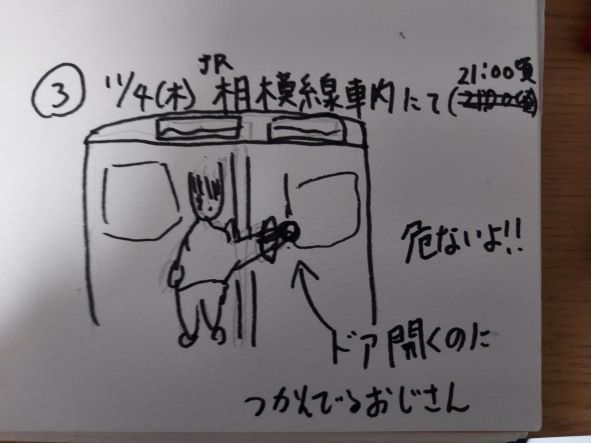 ③ 11/4(木) JR相模線車内にて(21:00頃)
危ないよ!!
ドア開くのに
つかんでるおじさん